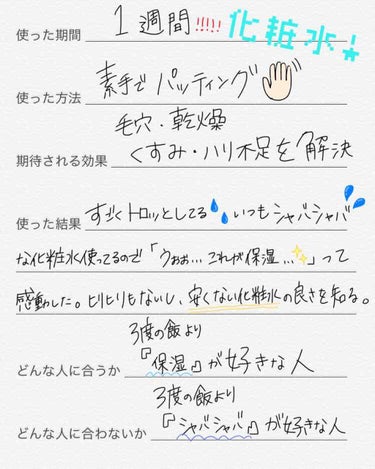 使った期間 1週間!!!!! 化粧水
使った方法 素手でパッティング
毛穴・乾燥
期待される効果 くすみ・ハリ不足を解決
使った結果 すごくトロッとしてる いつもシャバシャバ
な化粧水使ってるので「うぉぉ…これが保湿…」って
感動した。ヒリヒリもないし、安くない化粧水の良さを知る。
3度の飯より
どんな人に合うか 『保湿』が好きな人
3度の飯より
どんな人に合わないか 『シャバシャバ』が好きな人